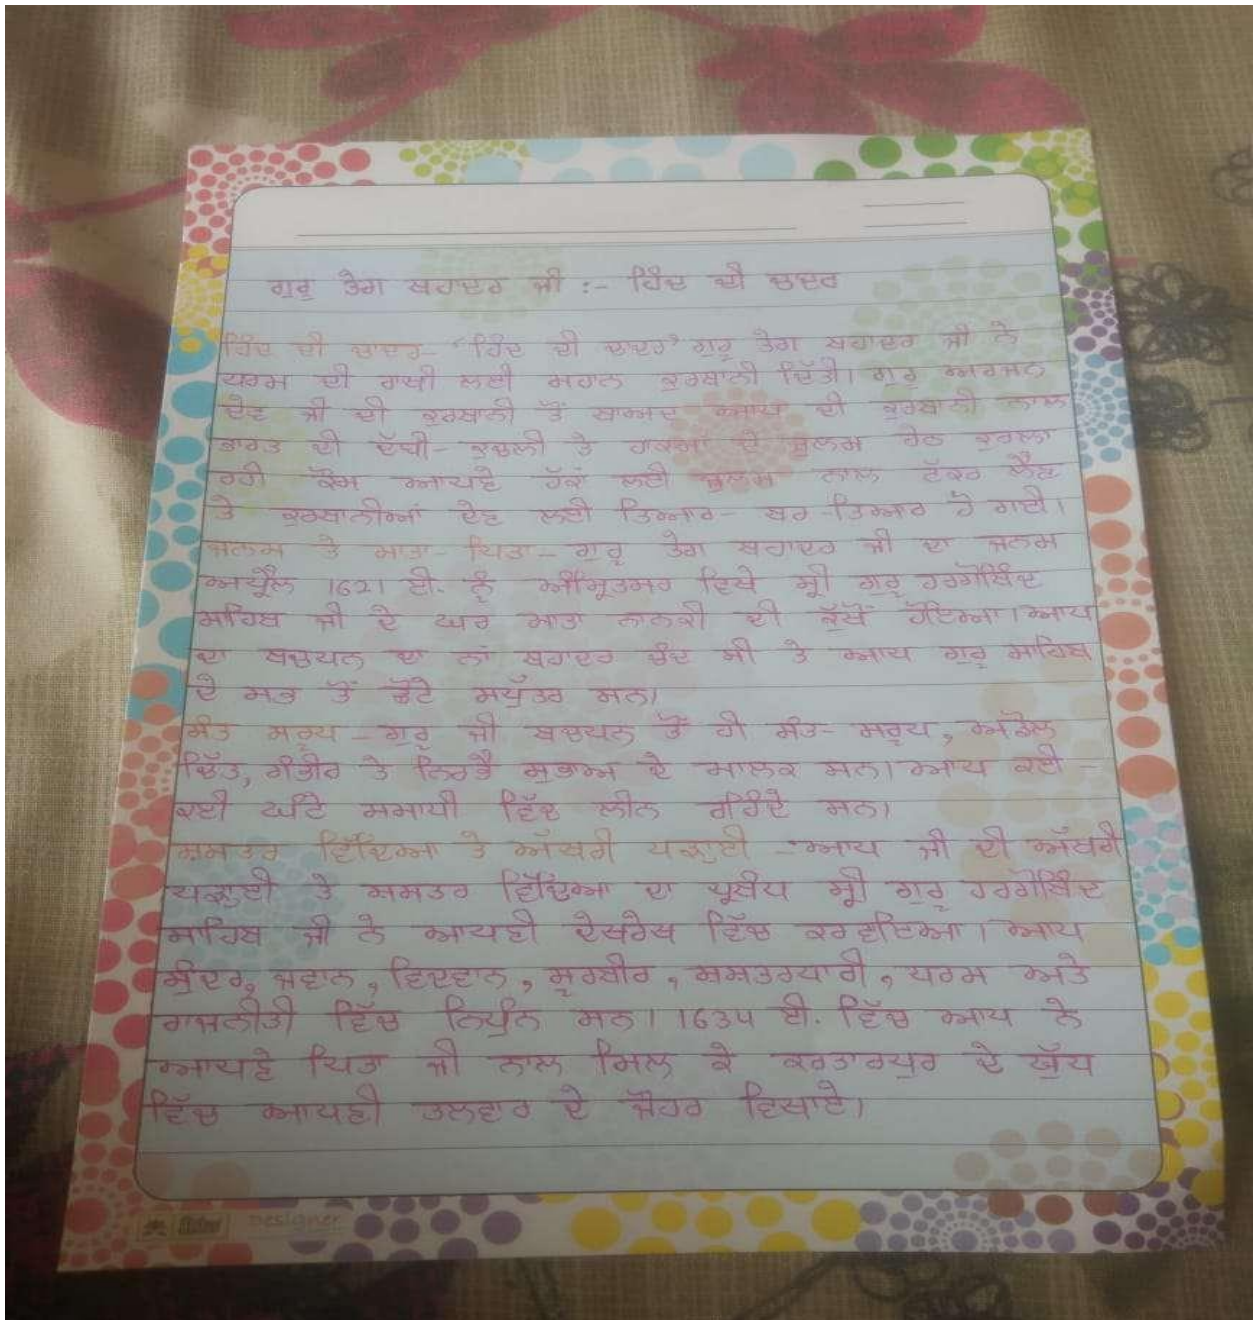 ਗੁਰੂ ਤੇਗ ਬਹਾਦਰ ਜੀ :- ਹਿੰਦ ਦੀ ਚਾਦਰ
ਹਿੰਦ ਦੀ ਚਾਦਰ- "ਹਿੰਦ ਦੀ ਚਾਦਰ" ਗੁਰੂ ਤੇਗ ਬਹਾਦਰ ਜੀ ਨੇ
ਧਰਮ ਦੀ ਰਾਖੀ ਲਈ ਮਹਾਨ ਕੁਰਬਾਨੀ ਦਿੱਤੀ। ਗੁਰੂ ਅਰਜਨ
ਦੇਵ ਜੀ ਦੀ ਕੁਰਬਾਨੀ ਤੋਂ ਬਾਅਦ ਆਪ ਦੀ ਕੁਰਬਾਨੀ ਨਾਲ
ਭਾਰਤ ਦੀ ਦੱਬੀ- ਕੁਚਲੀ ਤੇ ਹਾਕਮਾਂ ਦੇ ਜ਼ੁਲਮ ਹੇਠ ਕੁਰਲਾ
ਰਹੀ ਕੌਮ ਆਪਣੇ ਹੱਕਾਂ ਲਈ ਜ਼ੁਲਮ ਨਾਲ ਟੱਕਰ ਲੈਣ
ਤੇ ਕੁਰਬਾਨੀਆਂ ਦੇਣ ਲਈ ਤਿਆਰ- ਬਰ -ਤਿਆਰ ਹੋ ਗਈ।
ਜਨਮ ਤੇ ਮਾਤਾ- ਪਿਤਾ- ਗੁਰੂ ਤੇਗ ਬਹਾਦਰ ਜੀ ਦਾ ਜਨਮ
ਅਪ੍ਰੈਲ 1621 ਈ. ਨੂੰ ਅੰਮ੍ਰਿਤਸਰ ਵਿਖੇ ਸ੍ਰੀ ਗੁਰੂ ਹਰਗੋਬਿੰਦ
ਸਾਹਿਬ ਜੀ ਦੇ ਘਰ ਮਾਤਾ ਨਾਨਕੀ ਦੀ ਕੁੱਖੋਂ ਹੋਇਆ। ਆਪ
ਦਾ ਬਚਪਨ ਦਾ ਨਾਂ ਬਹਾਦਰ ਚੰਦ ਸੀ ਤੇ ਆਪ ਗੁਰੂ ਸਾਹਿਬ
ਦੇ ਸਭ ਤੋਂ ਛੋਟੇ ਸਪੁੱਤਰ ਸਨ।
ਸੰਤ ਸਰੂਪ - ਗੁਰੂ ਜੀ ਬਚਪਨ ਤੋਂ ਹੀ ਸੰਤ- ਸਰੂਪ, ਅਡੋਲ
ਚਿੱਤ, ਗੰਭੀਰ ਤੇ ਨਿਰਭੈ ਸੁਭਾਅ ਦੇ ਮਾਲਕ ਸਨ। ਆਪ ਕਈ -
ਕਈ ਘੰਟੇ ਸਮਾਧੀ ਵਿੱਚ ਲੀਨ ਰਹਿੰਦੇ ਸਨ।
ਸ਼ਸਤਰ ਵਿੱਦਿਆ ਤੇ ਅੱਖਰੀ ਪੜ੍ਹਾਈ - ਆਪ ਜੀ ਦੀ ਅੱਖਰੀ
ਪੜ੍ਹਾਈ ਤੇ ਸ਼ਸਤਰ ਵਿੱਦਿਆ ਦਾ ਪ੍ਰਬੰਧ ਸ੍ਰੀ ਗੁਰੂ ਹਰਗੋਬਿੰਦ
ਸਾਹਿਬ ਜੀ ਨੇ ਆਪਣੀ ਦੇਖਰੇਖ ਵਿੱਚ ਕਰਵਾਇਆ। ਆਪ
ਸੁੰਦਰ, ਜਵਾਨ, ਵਿਦਵਾਨ, ਸੂਰਬੀਰ, ਸ਼ਸਤਰਧਾਰੀ, ਧਰਮ ਅਤੇ
ਰਾਜਨੀਤੀ ਵਿੱਚ ਨਿਪੁੰਨ ਸਨ। 1634 ਈ. ਵਿੱਚ ਆਪ ਨੇ
ਆਪਣੇ ਪਿਤਾ ਜੀ ਨਾਲ ਮਿਲ ਕੇ ਕਰਤਾਰਪੁਰ ਦੇ ਯੁੱਧ
ਵਿੱਚ ਆਪਣੀ ਤਲਵਾਰ ਦੇ ਜੌਹਰ ਵਿਖਾਏ।
Designer